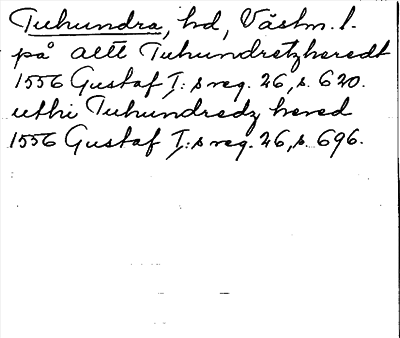 Tuhundra, hd, Västm. l.
på altt Tuhundretzheredt
1556 Gustaf I:s reg. 26, s. 620.
uthi Tuhundredz hered
1556 Gustaf I:s reg. 26, s. 696.